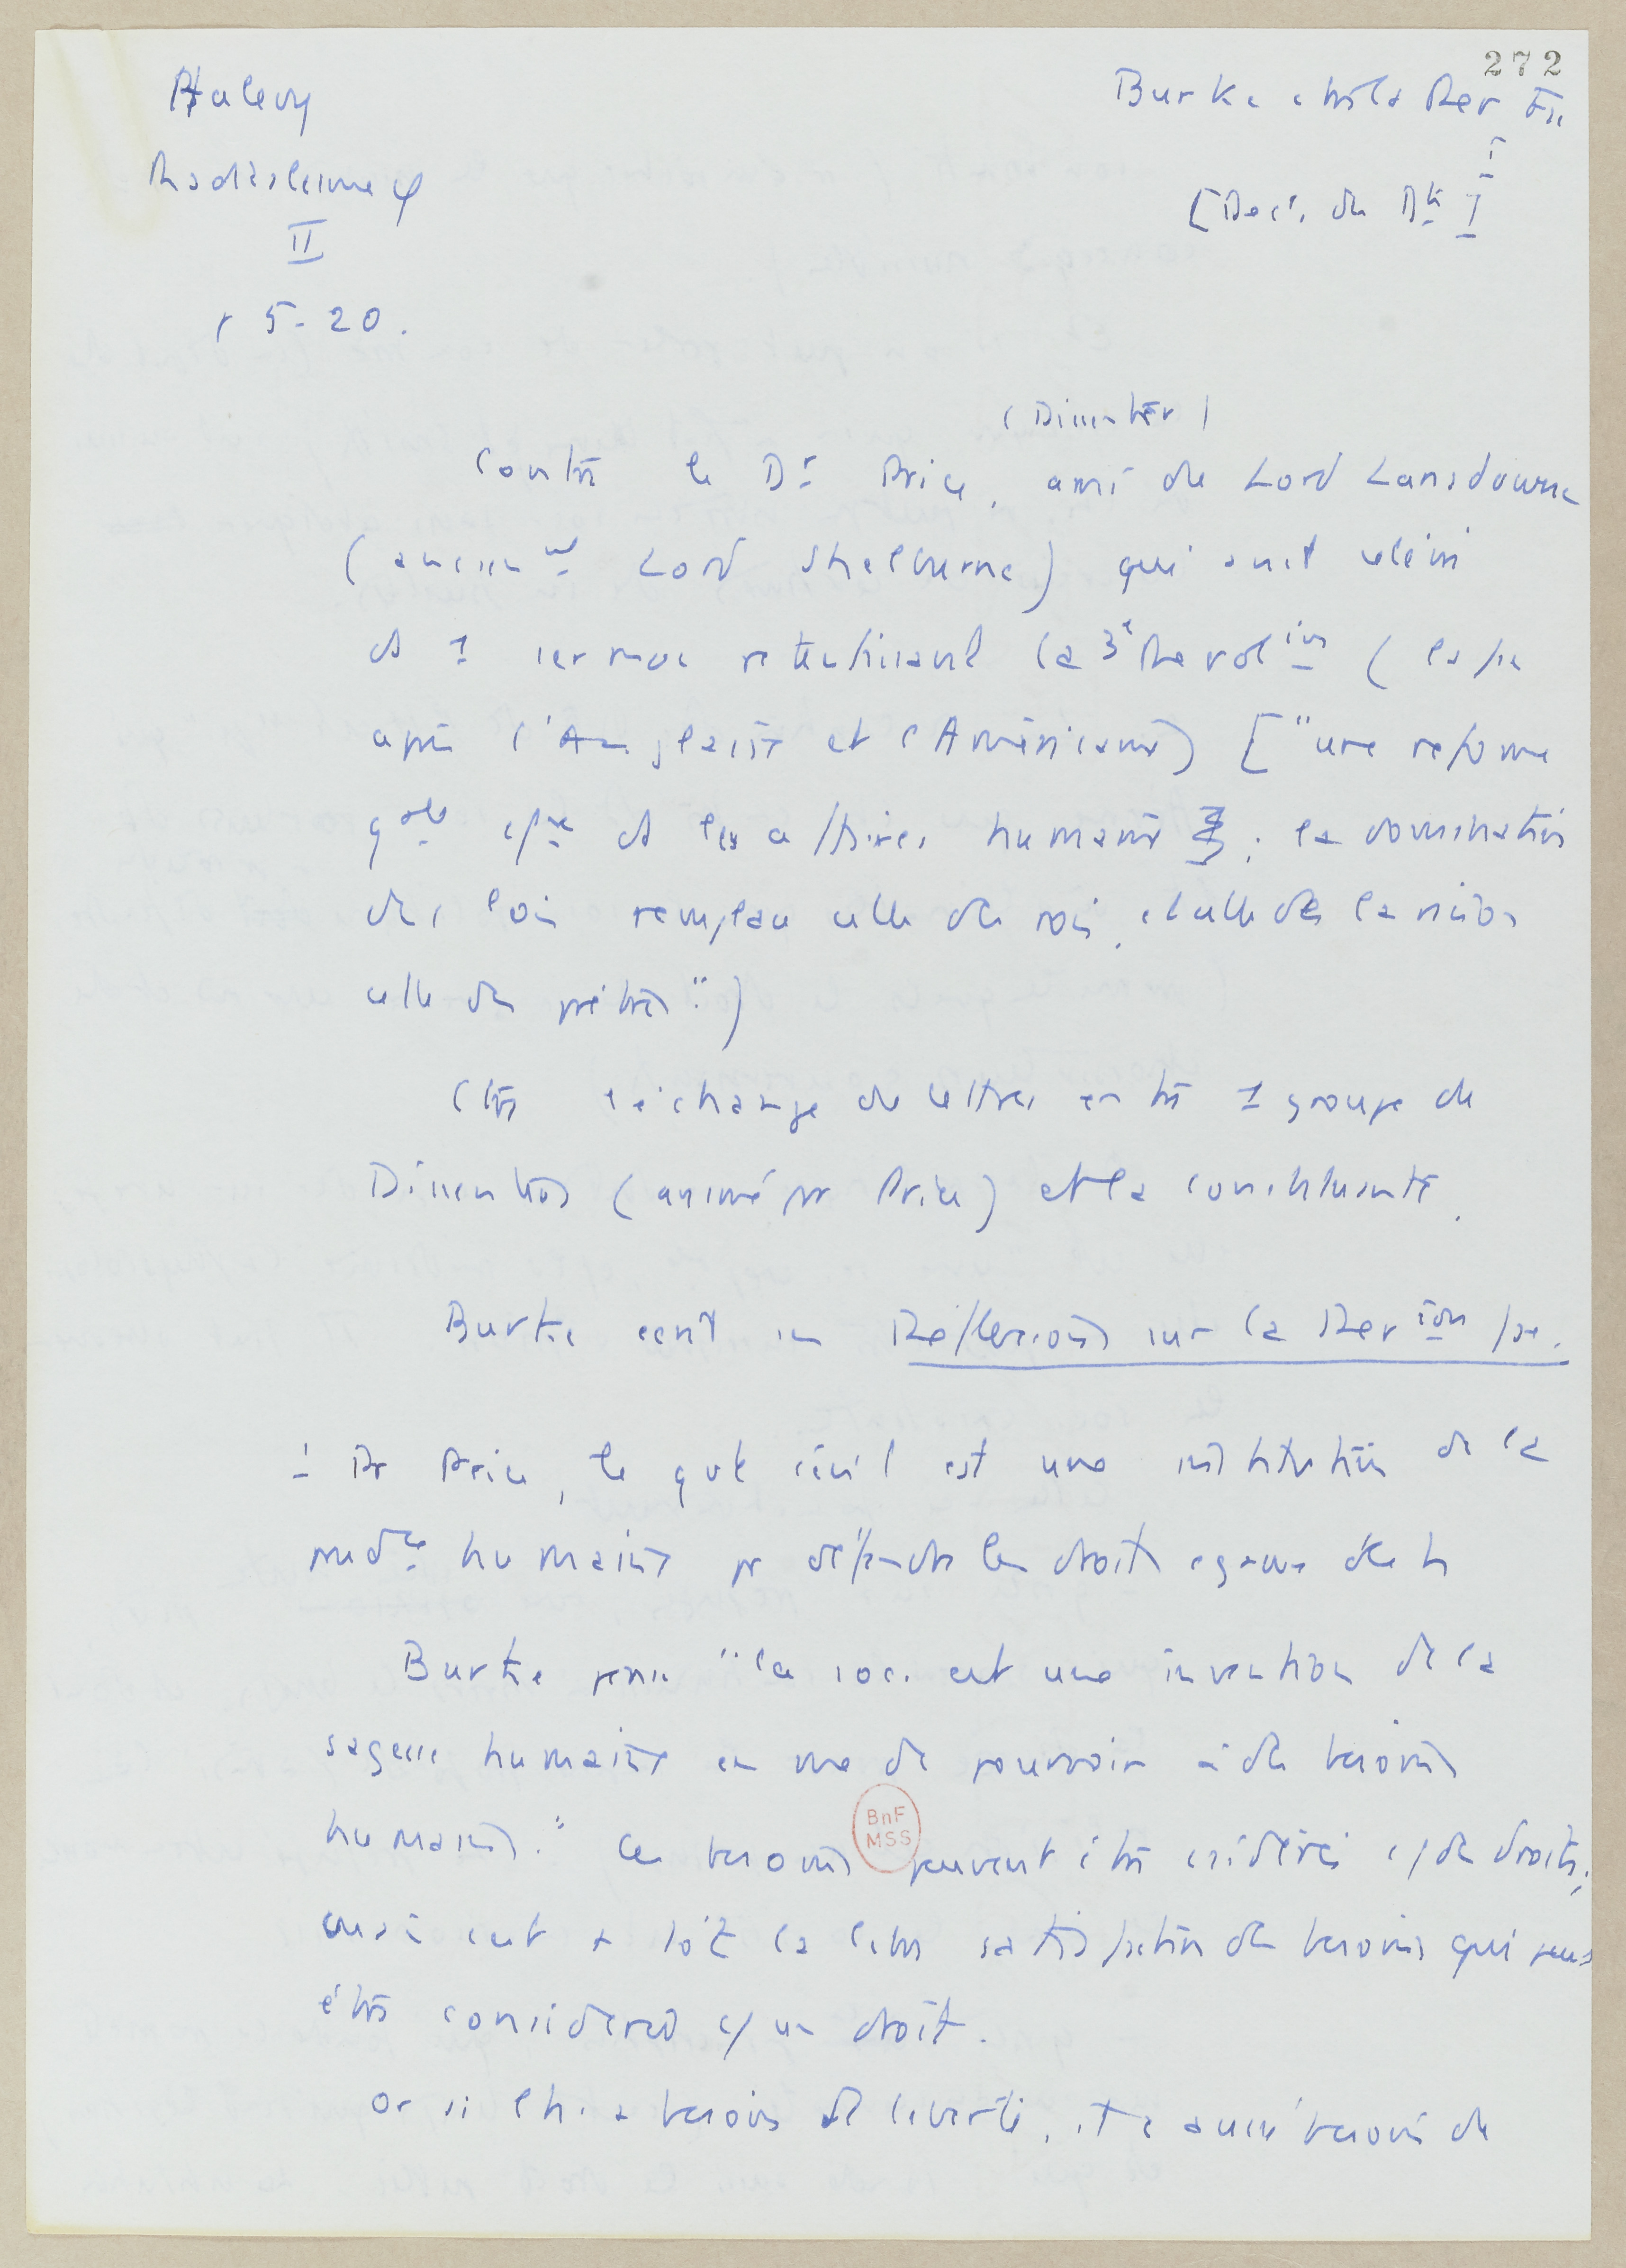 272
Halevy
Radicalisme φ
II
p 5-20.
Burke et la Rev Fse
I
[Decl. des Dts I
(Dissenter)
Contre le Dr Price, ami de Lord Lansdowne
(anciennt Lord Shelburne) qui avait célébré
ds 1 sermon retentissant la 3e Revolion (la fse
après l'Anglaise et l'Américaine) ["une reforme
gale ds les affaires humaines ; la domination
des lois remplace celle des rois, et celle de la raison
celle des prêtres".)
Ctre échange de lettres entre 1 groupe de
Dissenters (animé par Price) et la constituante.
Burke ecrit ses Reflexions sur la Revion fse.
- Pr Price, le gvt civil est une institution de la
prudce humaine pr défendre les droits egaux des h
Burke pense "la soc. est une invention de la
sagesse humaine en vue de pourvoir à des besoins
humains." Ces besoins peuvent être csidérés c/ des droits;
mais c'est + tôt la satisfaction des besoins qui peut
être considérée c/ un droit.
Or si l'h. a besoin de liberté, il a aussi besoin de
BnF
MSS